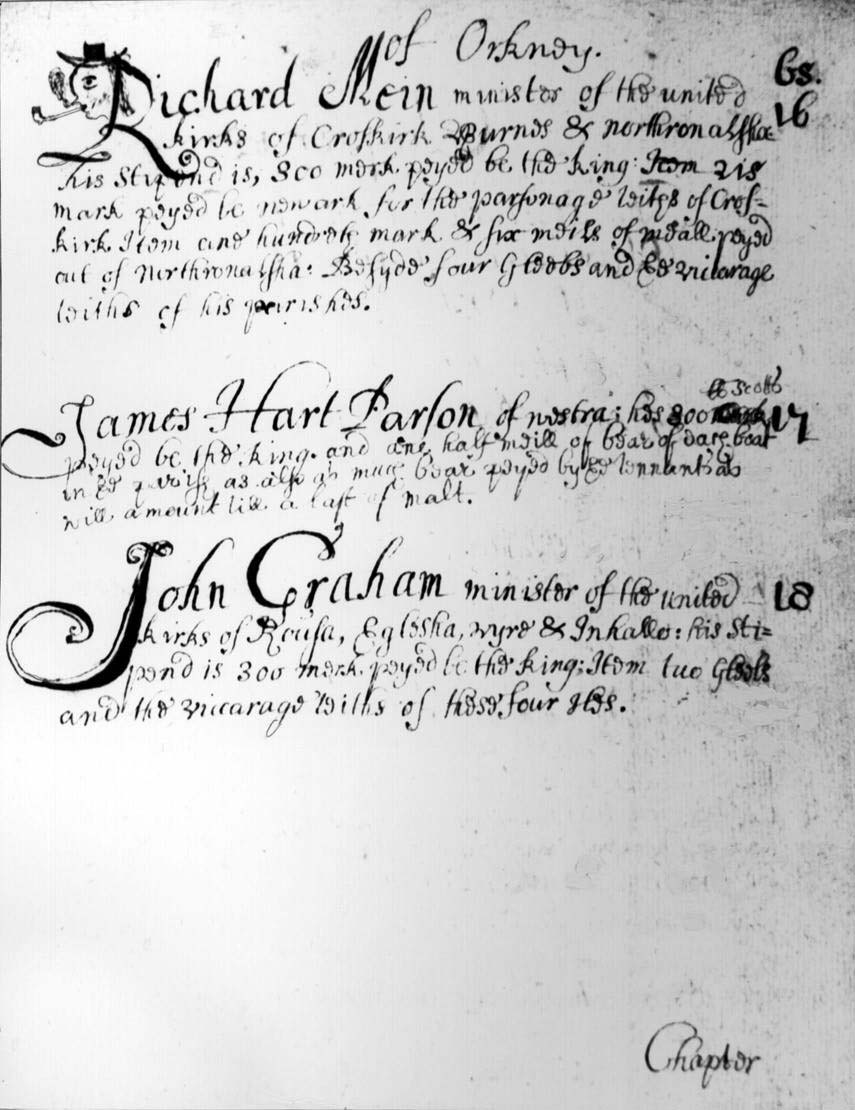 of Orkney.
65.
Richard Mein minister of the united 16
kirks of Croskirk Burnes & northronalsha
his stipend is, 800 merk peyed be the king: Item
mark peyed be newark for the parsonage teiths of Cros-
kirk Item ane hundreth mark & six meils of meall peyed
out of Northronalsha: Besyde four Gleebs and ye viccarage
teiths of his parishes.
lb Scotts
James Hart Parson of westra: hes 800 17
peyed be the king. and ane half meill of bear of each boat
in ye parish as also as much bear peyed by ye tennants as
will amount till a last of malt.
John Graham minister of the united 18
kirks of Rousa, Eglesha, wyre & Inhallo: his sti=
pend is 300 merk peyed be the king: Item tuo Gleebs
and the viccarage teiths of these four Iles.
Chapter